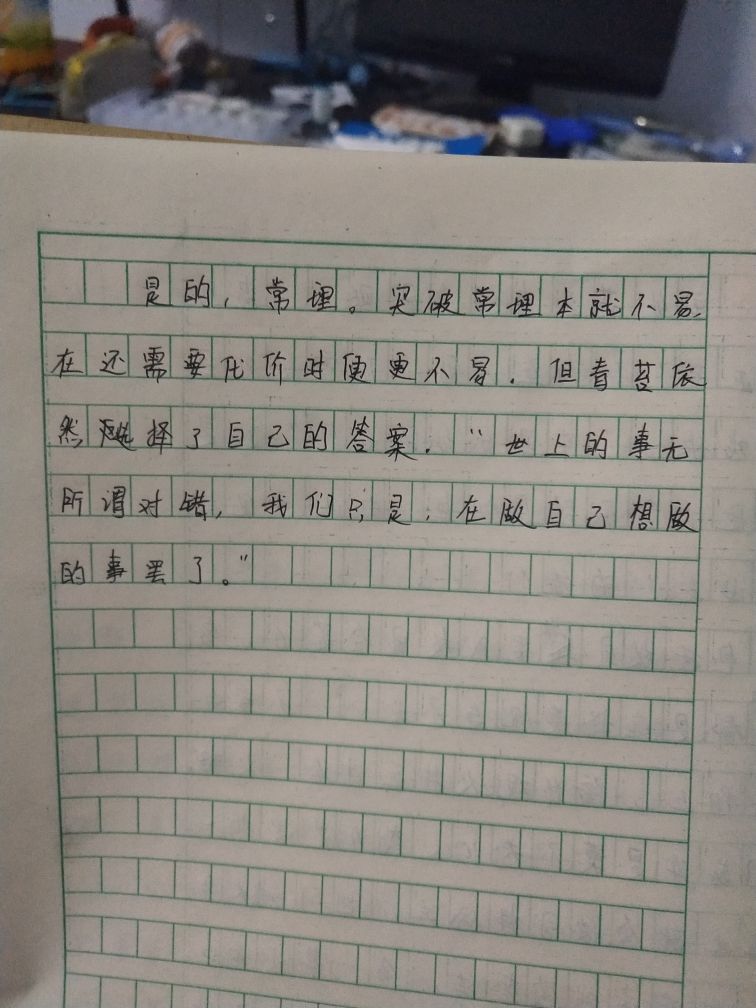 是的，常理。突破常理本就不易，
在还需要代价时便更不易．但青苔依
然选择了自己的答案．“世上的事无
所谓对错，我们只是，在做自己想做
的事罢了。”